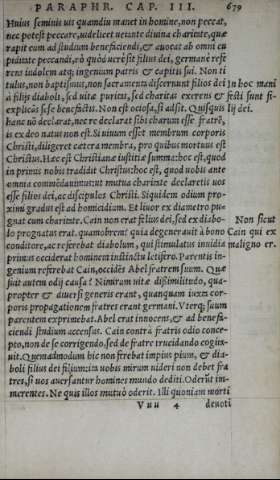 PARAPHR. CAP. III. 679
Huius seminis uis quamdiu manet in homine, non peccat,
nec potest peccare, uidelicet uetante diuina charitate, quæ
rapit eum ad studium beneficiendi, & auocat ab omni cu
piditate peccandi, rò quòd uere sit filius dei, germane refe
rens indolem atq; ingenium patris & capitis sui. Non ti
tulus, non baptismus, non sacramenta discernunt filios dei In hoc mani
à filijs diaboli, sed uitæ puritas, sed charitas exerens & festi sunt fi-
explicās se benefactis. Non est otiosa, si adsit. Quisquis lij dei.
hanc nō declarat, nec re declarat sibi charum esse fratrē,
is ex deo natus non est. Si uiuum esset membrum corporis
Christi, diligeret cætera membra, pro quibus mortuus est
Christus. Hæc est Christianæ iustitiæ summa: hoc est, quod
in primus nobis tradidit Christus: hoc est, quod uobis ante
omnia commēdauimus: ut mutua charitate declaretis uos
esse filios dei, ac discipulos Christi. Siquidem odium pro-
ximi gradus est ad homicidium. Et liuor ex diametro pu-
gnat cum charitate. Cain non erat filius dei, sed ex diabo- Non sicut
lo prognatus erat. quamobrem? quia degenerauit à bono Cain qui ex
conditore, ac referebat diabolum, qui stimulatus inuidia maligno er.
primus occiderat hominem instinctu letifero. Parentis in-
genium referebat Cain, occidēs Abel fratrem suum. Quæ
fuit autem odij causa? Nimirum uitæ dissimilitudo, qua-
propter & diuersi generis erant, quanquam iuxta cor-
poris propagationem fratres erant germani. Vterq; suum
parentem exprimebat. Abel erat innocens, & ad benefa-
ciendi studium accensus. Cain contrà fratris odio conce-
pto, non de se corrigendo, sed de fratre trucidando cogita-
uit. Quemadmodum hic non ferebat impius pium, & dia-
boli filius dei filium: ita uobis mirum uideri non debet fra
tres, si uos auersantur homines mundo dediti. Oderūt im-
merentes. Ne quas illos mutuò oderit. Illi quoniam morti
Vuu 4 deuoti